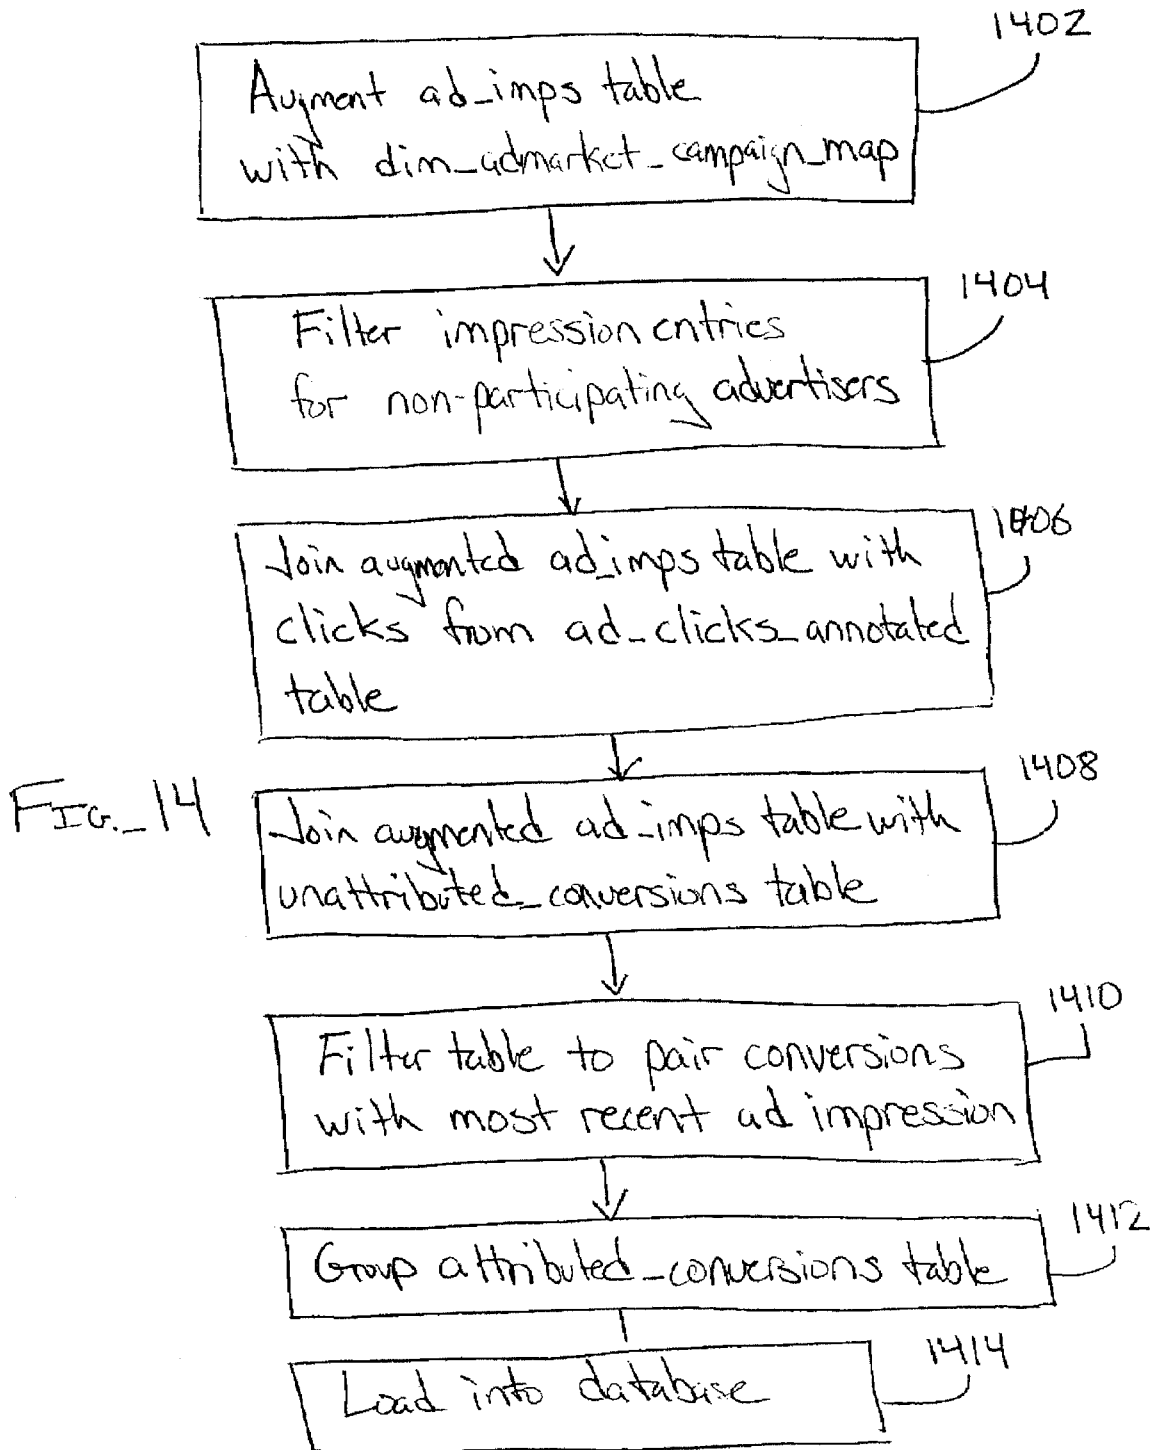 1402
Augment ad_imps table
with dim_admarket_campaign_map
1404
Filter impression entries
for non-participating advertisers
1406
Join augmented ad_imps table with
clicks from ad_clicks_annotated
table
FIG._14
1408
Join augmented ad_imps table with
unattributed_conversions table
1410
Filter table to pair conversions
with most recent ad impression
1412
Group attributed_conversions table
1414
Load into database